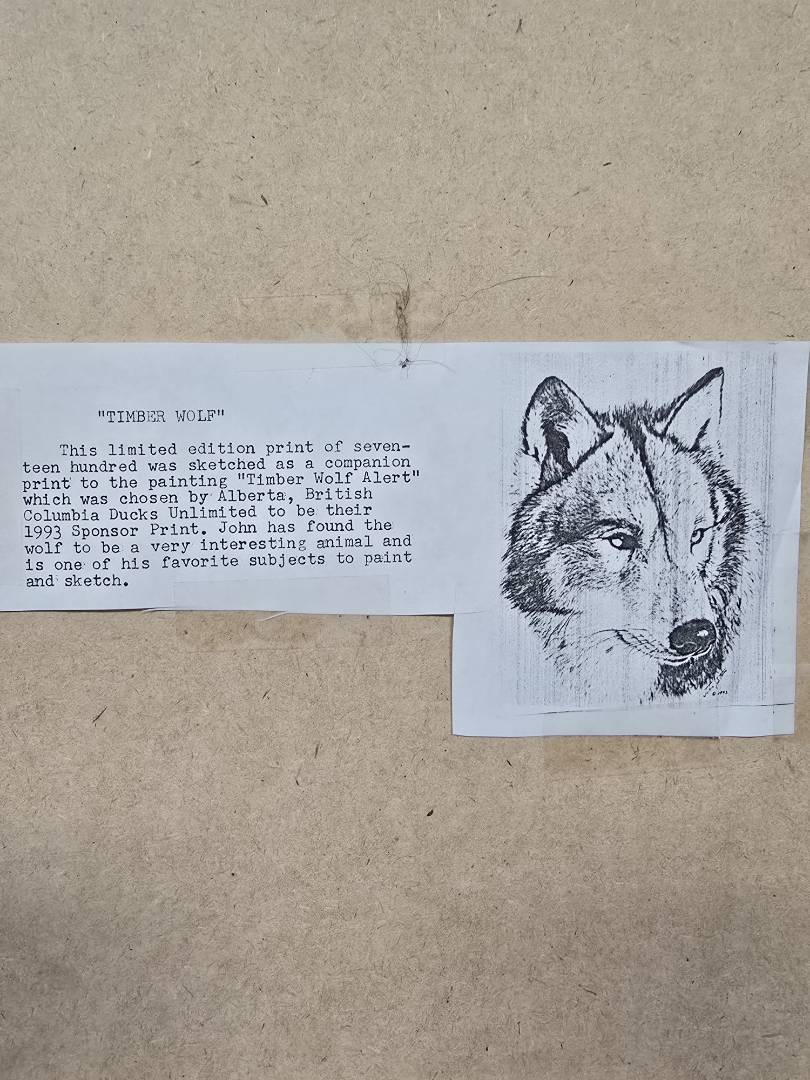 "TIMBER WOLF"
This limited edition print of seven-
teen hundred was sketched as a companion
print to the painting "Timber Wolf Alert"
which was chosen by Alberta, British
Columbia Ducks Unlimited to be their
1993 Sponsor Print. John has found the
wolf to be a very interesting animal and
is one of his favorite subjects to paint
and sketch.